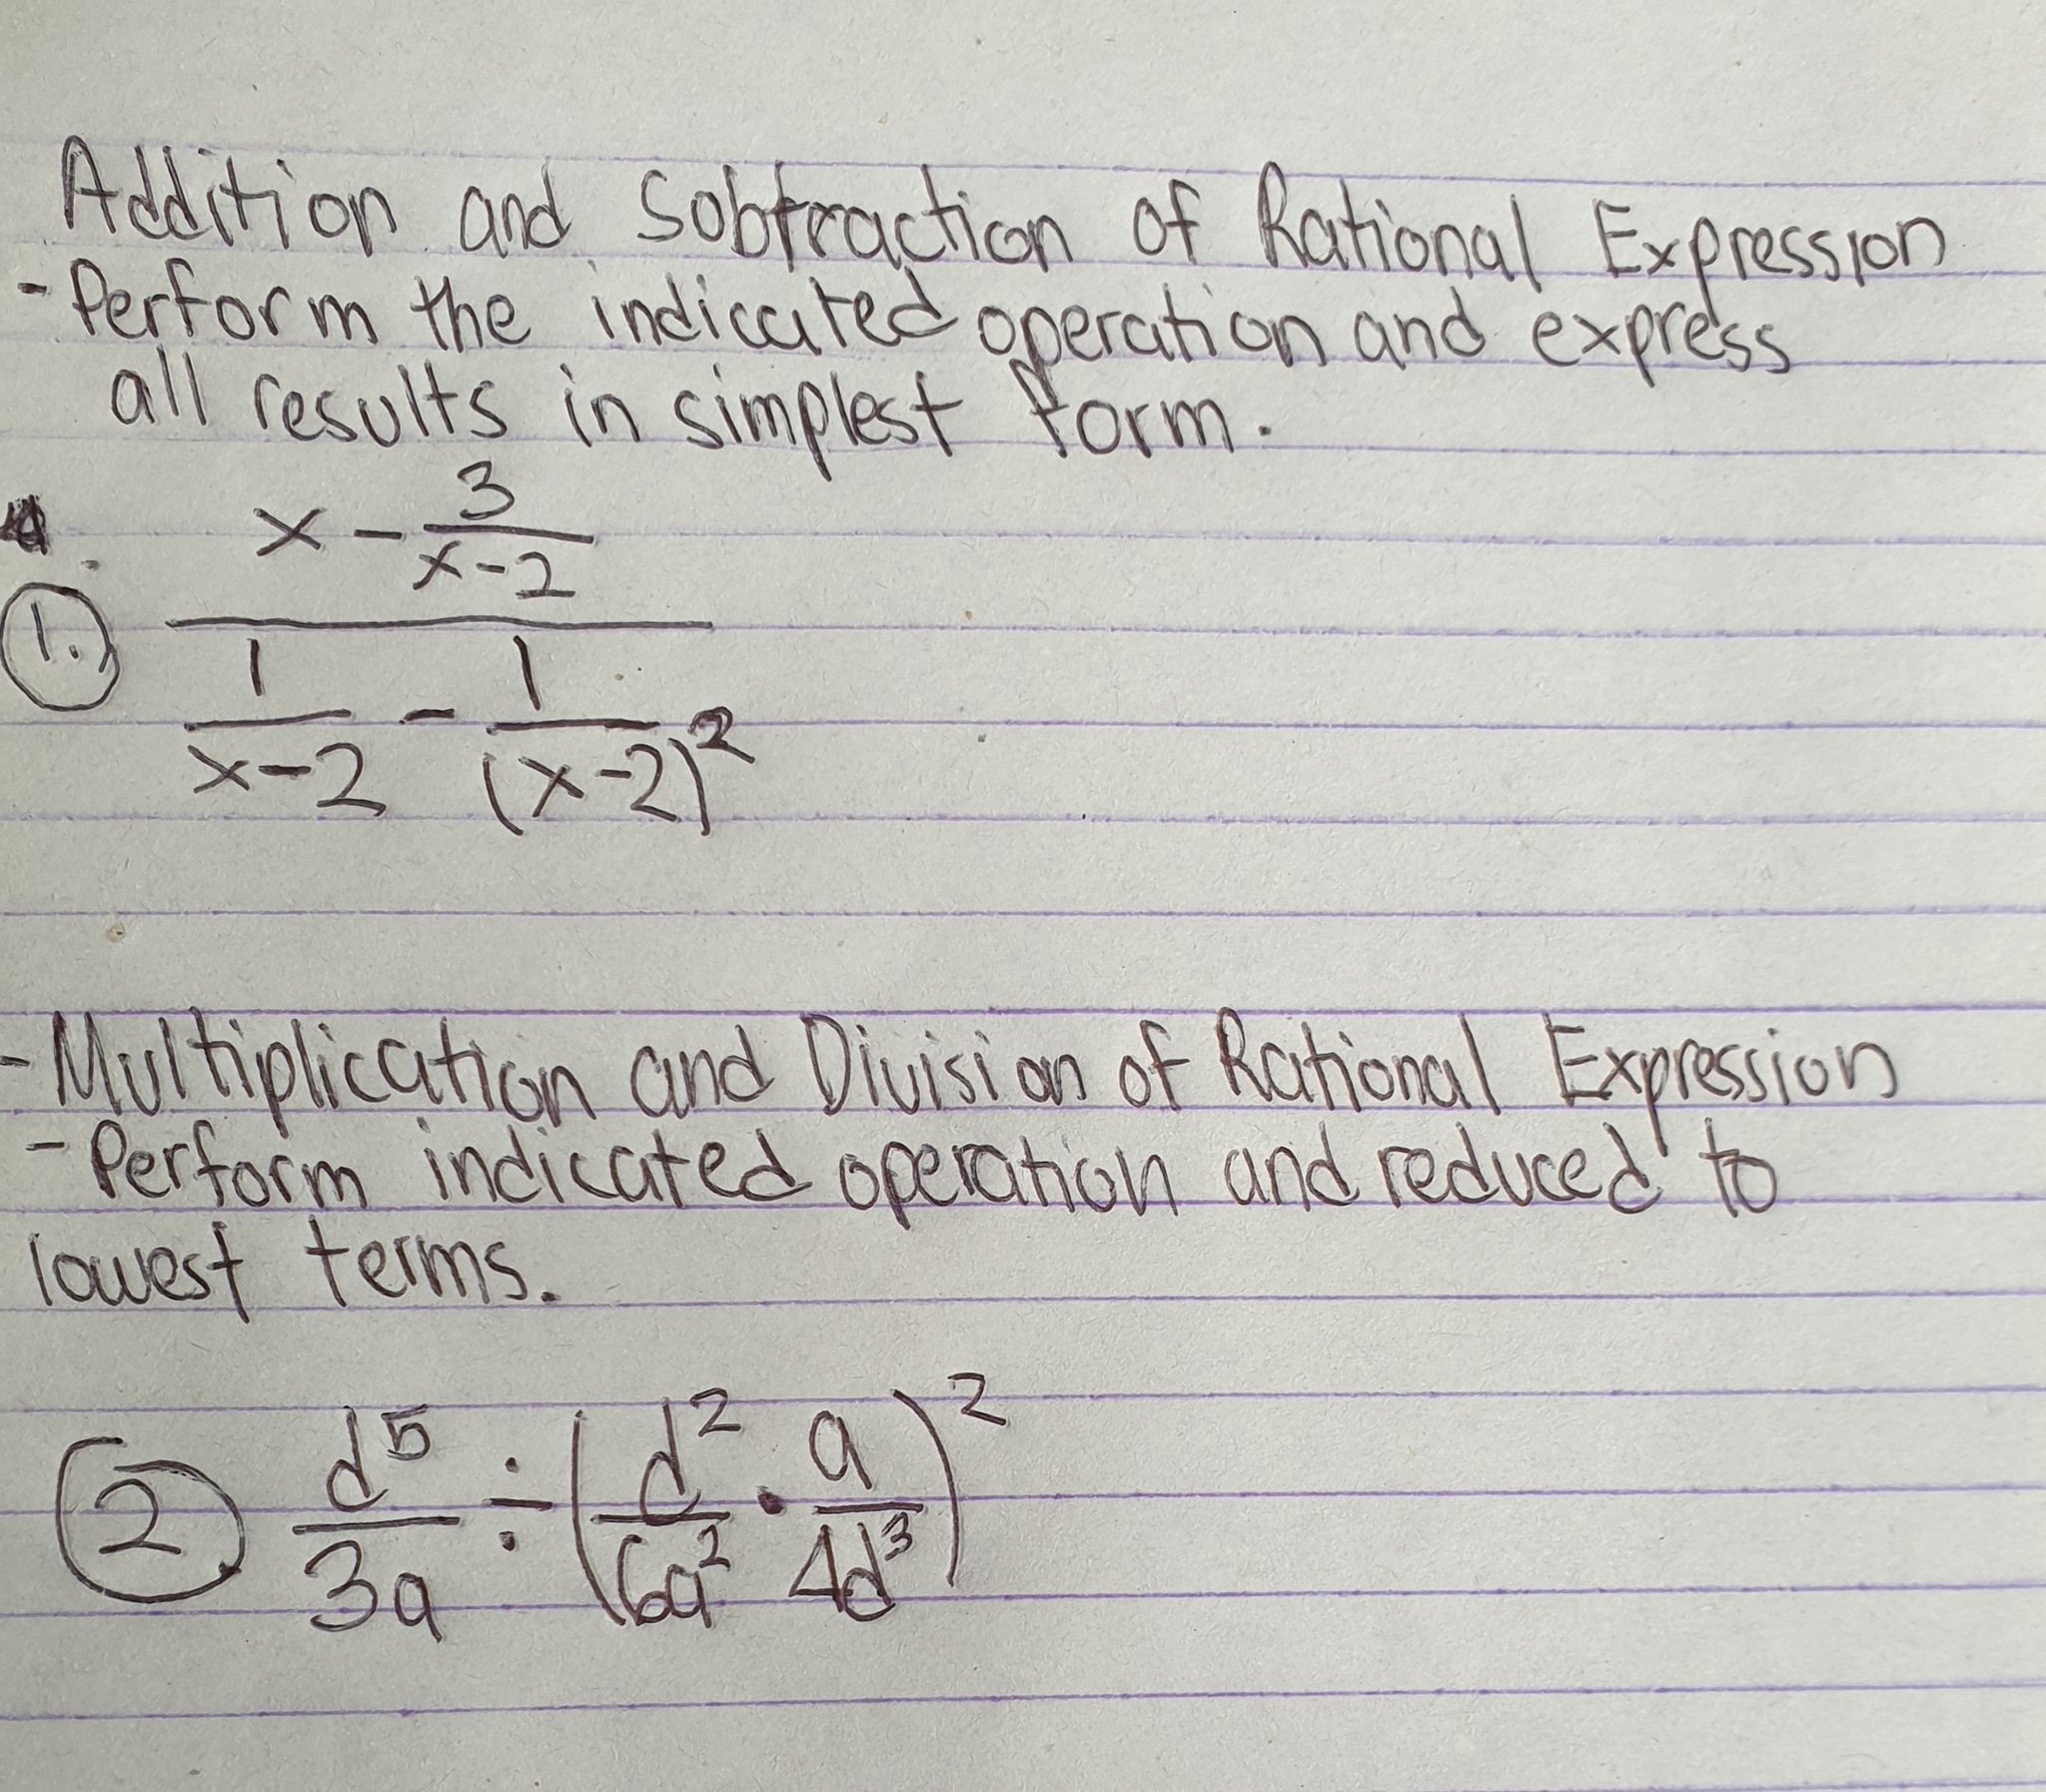 Addition and Subtraction of Rational Expression
- Perform the indicated operation and express
all results in simplest form.
x - 3/(x-2)
1.
1/(x-2) - 1/(x-2)²
- Multiplication and Division of Rational Expression
- Perform indicated operation and reduced to
lowest terms.
2 d⁵/3a ÷ (d²/6a² · a/4d³)²